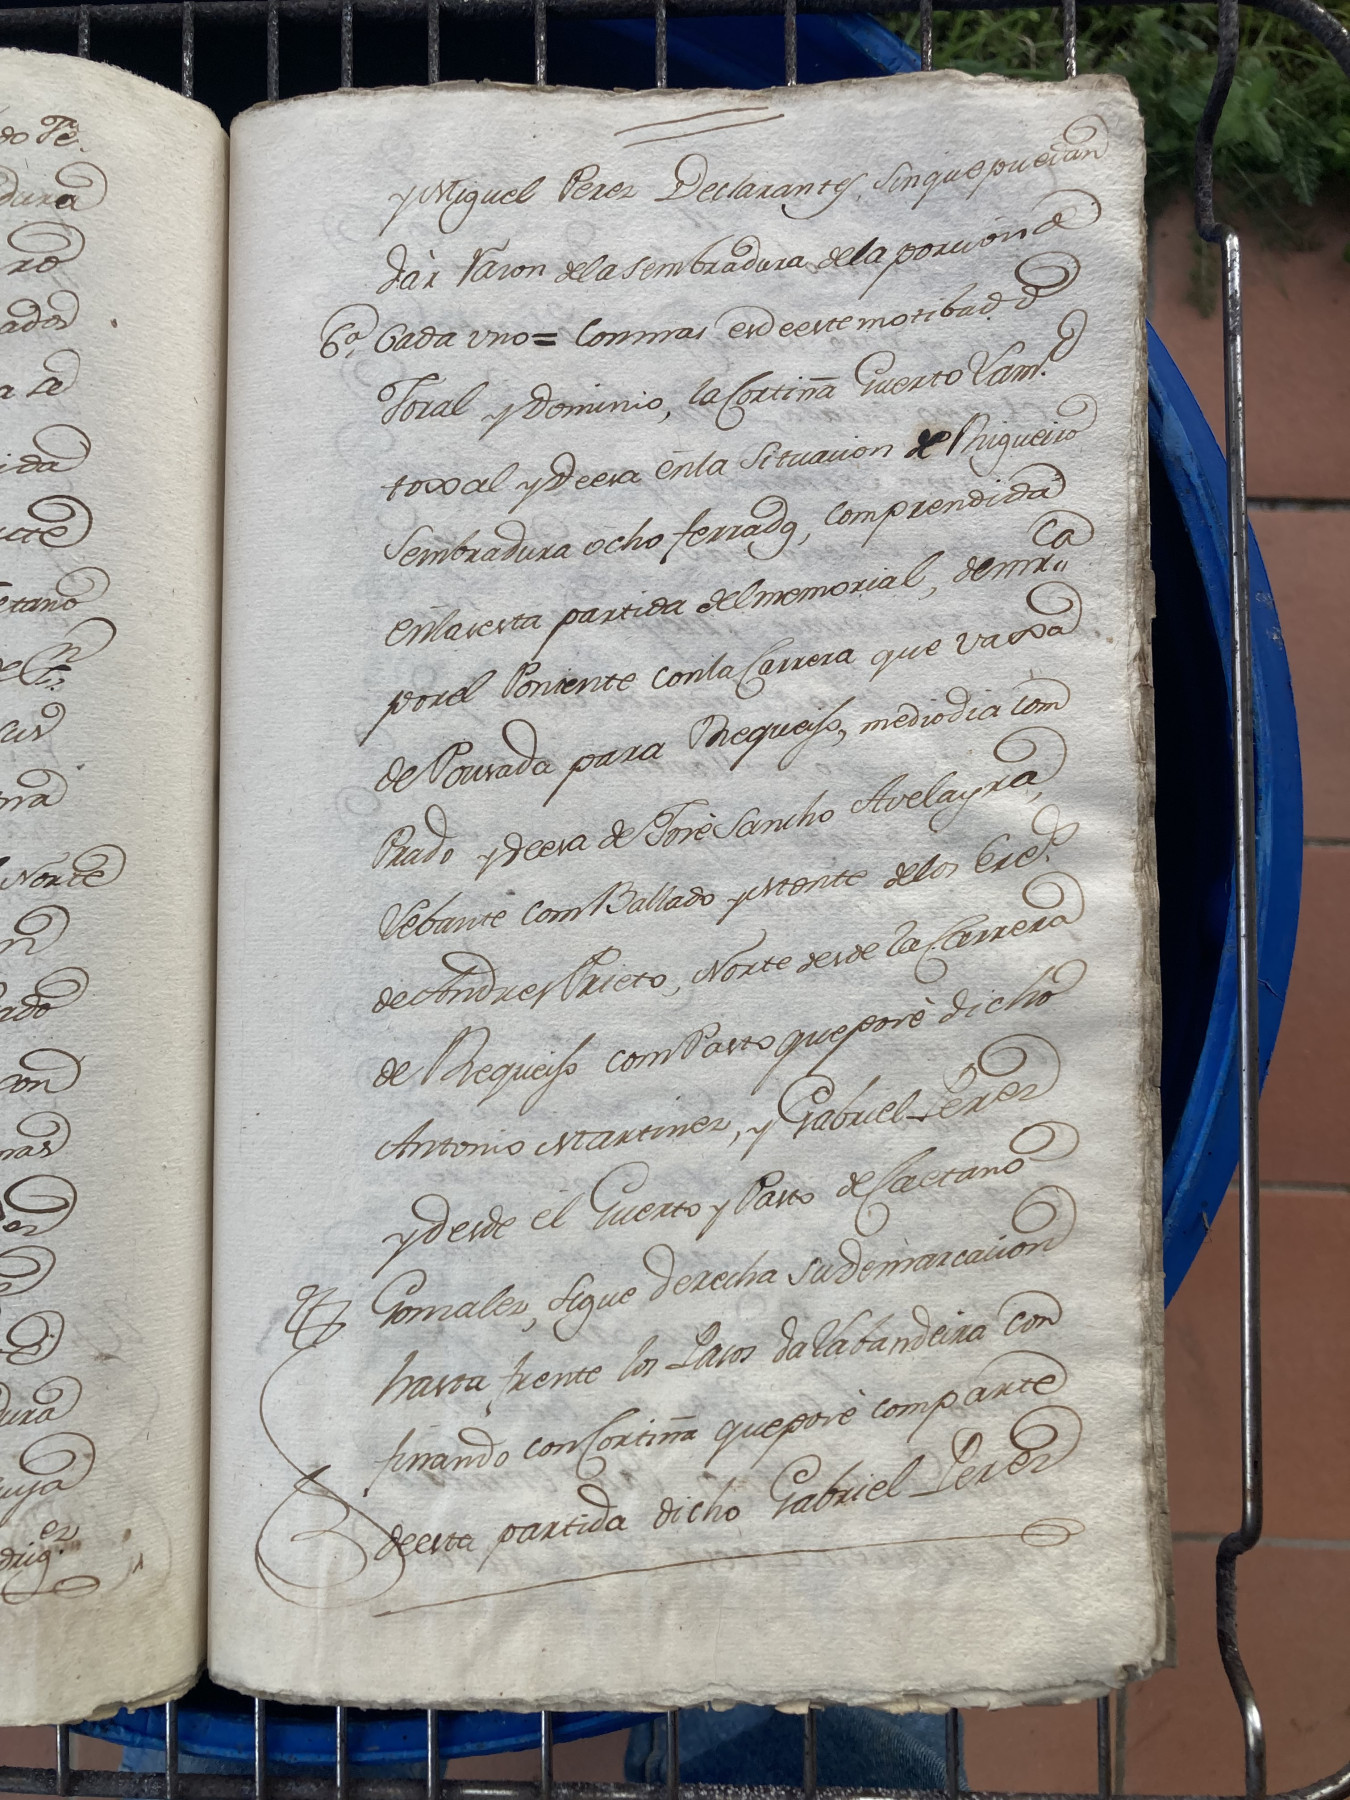 do Fe.
dura
ro
ados
a se
ida
Norte
ado
con
mas
dura
cuya
y Miguel Perez Declarantes, sinque puedan
dàr Razon dela sembradura dela porcion de
6ª, Cada vno = Conmas esdeeste motibado d
Foral y Dominio, la Cortiña Guerto Cam.º
toxal y Deesa énla Situacion de Rigueiro
Sembradura ócho ferrados, comprendida
énlasesta partida delmemorial, demrca
porel Poniente conla Carrera que vaxa
de Pousada para Requeijo, mediodia com
Prado y deesa de Josè Sancho Avelayra,
Lebante com Ballado y monte delos Ered.s
de Andres Prieto, Norte desde la Carrera
de Requeijo com Pasto queposè dicho
Antonio Martinez, y Gabriel Perez
y desde él Guerto y Pasto de Caetano
Gonzalez, sigue derecha sudemarcacion
hasta frente los Pasos da Labandeira con
finando con Cortiña queposè comparte
deesta partida dicho Gabriel Perez